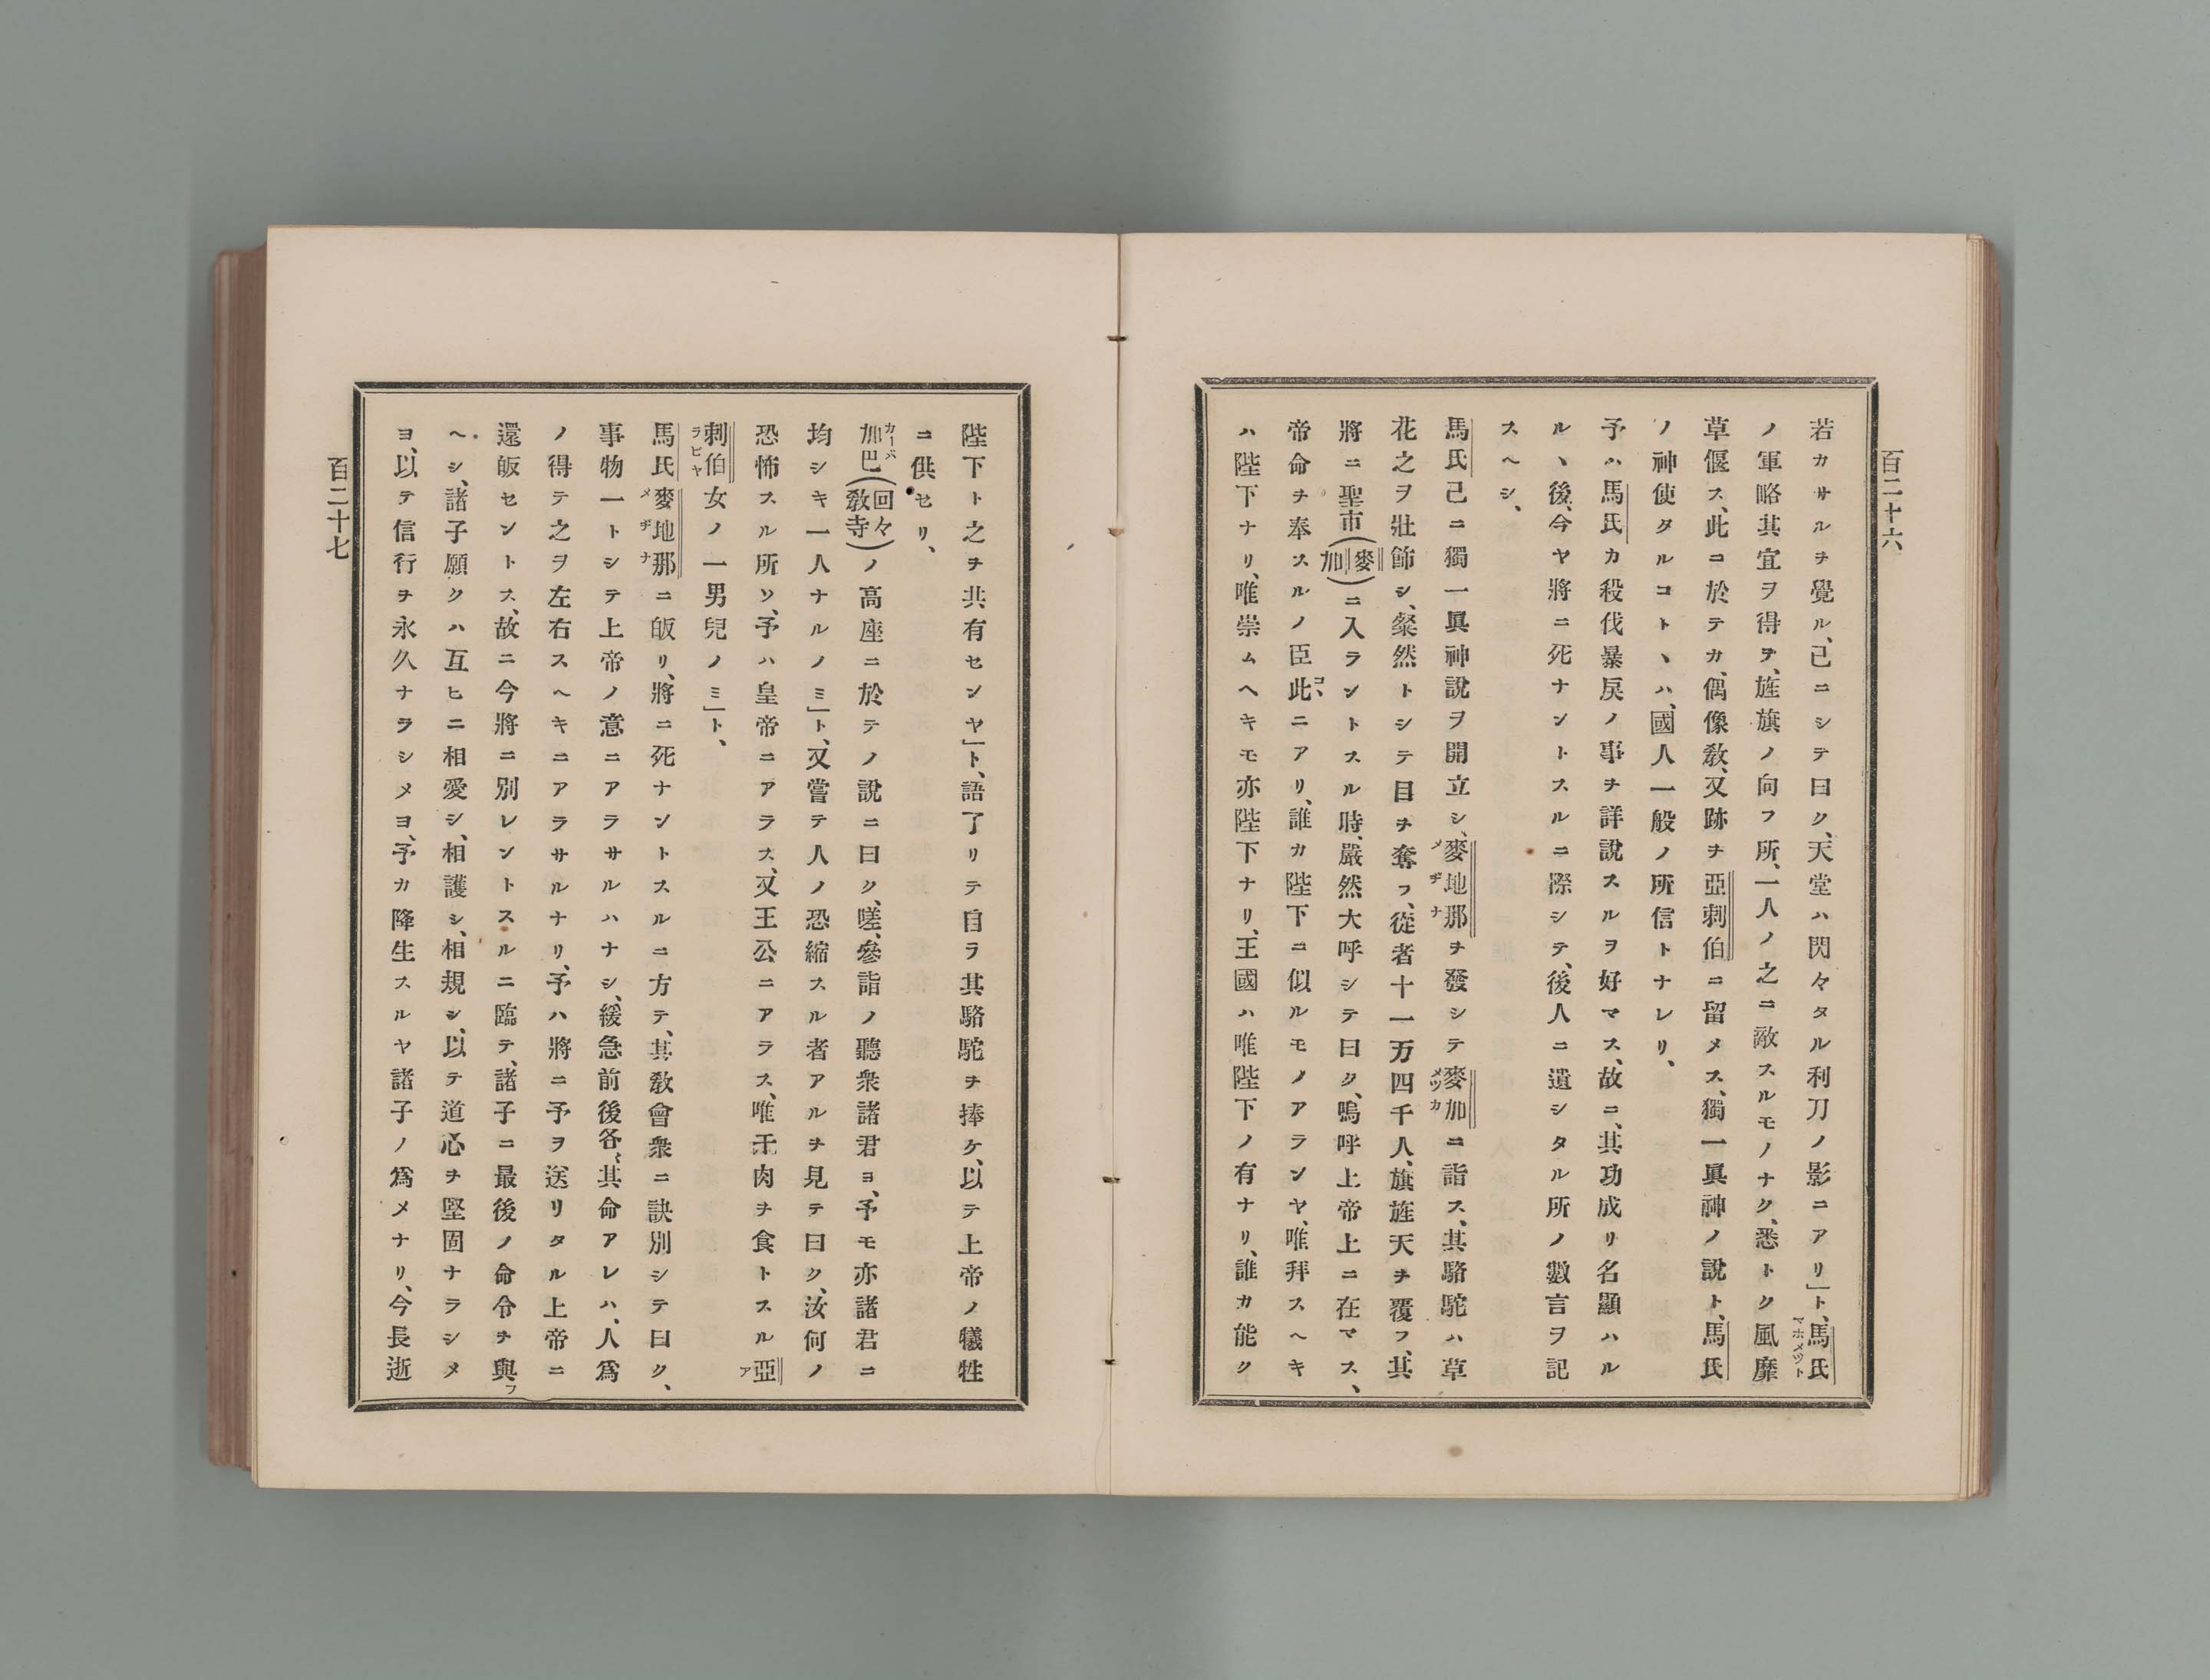 百二十六
若カサルヲ覺ル、己ニシテ曰ク、天堂ハ閃々タル利刀ノ影ニアリ」ト、馬氏
マホメツト
ノ軍略其宜ヲ得テ、旌旗ノ向フ所、一人ノ之ニ敵スルモノナク、悉トク風靡
草偃ス、此ニ於テカ、偶像敎、又跡ヲ亞刺伯ニ留メス、獨一眞神ノ說ト、馬氏
ノ神使タルコトヽハ、國人一般ノ所信トナレリ、
予ハ馬氏カ殺伐暴戾ノ事ヲ詳說スルヲ好マス、故ニ、其功成リ名顯ハル
ルヽ後、今ヤ將ニ死ナントスルニ際シテ、後人ニ遺シタル所ノ數言ヲ記
スヘシ、
馬氏已ニ獨一眞神說ヲ開立シ、麥地那ヲ發シテ麥加ニ詣ス、其駱駝ハ草
メヂナ
メツカ
花之ヲ壯飾シ、粲然トシテ目ヲ奪フ、從者十一万四千人、旗旌天ヲ覆フ、其
將ニ聖市(麥加)ニ入ラントスル時、嚴然大呼シテ曰ク、嗚呼上帝上ニ在マス、
帝命ヲ奉スルノ臣此ニアリ、誰カ陛下ニ似ルモノアランヤ、唯拜スヘキ
コヽ
ハ陛下ナリ、唯崇ムヘキモ亦陛下ナリ、王國ハ唯陛下ノ有ナリ、誰カ能ク
陛下ト之ヲ共有センヤ」ト、語了リテ自ラ其駱駝ヲ捧ケ、以テ上帝ノ犧牲
ニ供セリ、
加巴(回々敎寺)ノ高座ニ於テノ說ニ曰ク、嗟、參詣ノ聽衆諸君ヨ、予モ亦諸君ニ
カーバ
均シキ一人ナルノミ」ト、又嘗テ人ノ恐縮スル者アルヲ見テ曰ク、汝何ノ
恐怖スル所ソ、予ハ皇帝ニアラス、又王公ニアラス、唯干肉ヲ食トスル亞
ア
刺伯女ノ一男兒ノミ」ト、
ラビヤ
馬氏麥地那ニ皈リ、將ニ死ナントスルニ方テ、其敎會衆ニ訣別シテ曰ク、
メヂナ
事物一トシテ上帝ノ意ニアラサルハナシ、緩急前後各、其命アレハ、人爲
ノ得テ之ヲ左右スヘキニアラサルナリ、予ハ將ニ予ヲ送リタル上帝ニ
還皈セントス、故ニ今將ニ別レントスルニ臨テ、諸子ニ最後ノ命令ヲ與フ
ヘシ、諸子願クハ互ヒニ相愛シ、相護シ、相規シ、以テ道心ヲ堅固ナラシメ
ヨ、以テ信行ヲ永久ナラシメヨ、予カ降生スルヤ諸子ノ爲メナリ、今長逝
百二十七